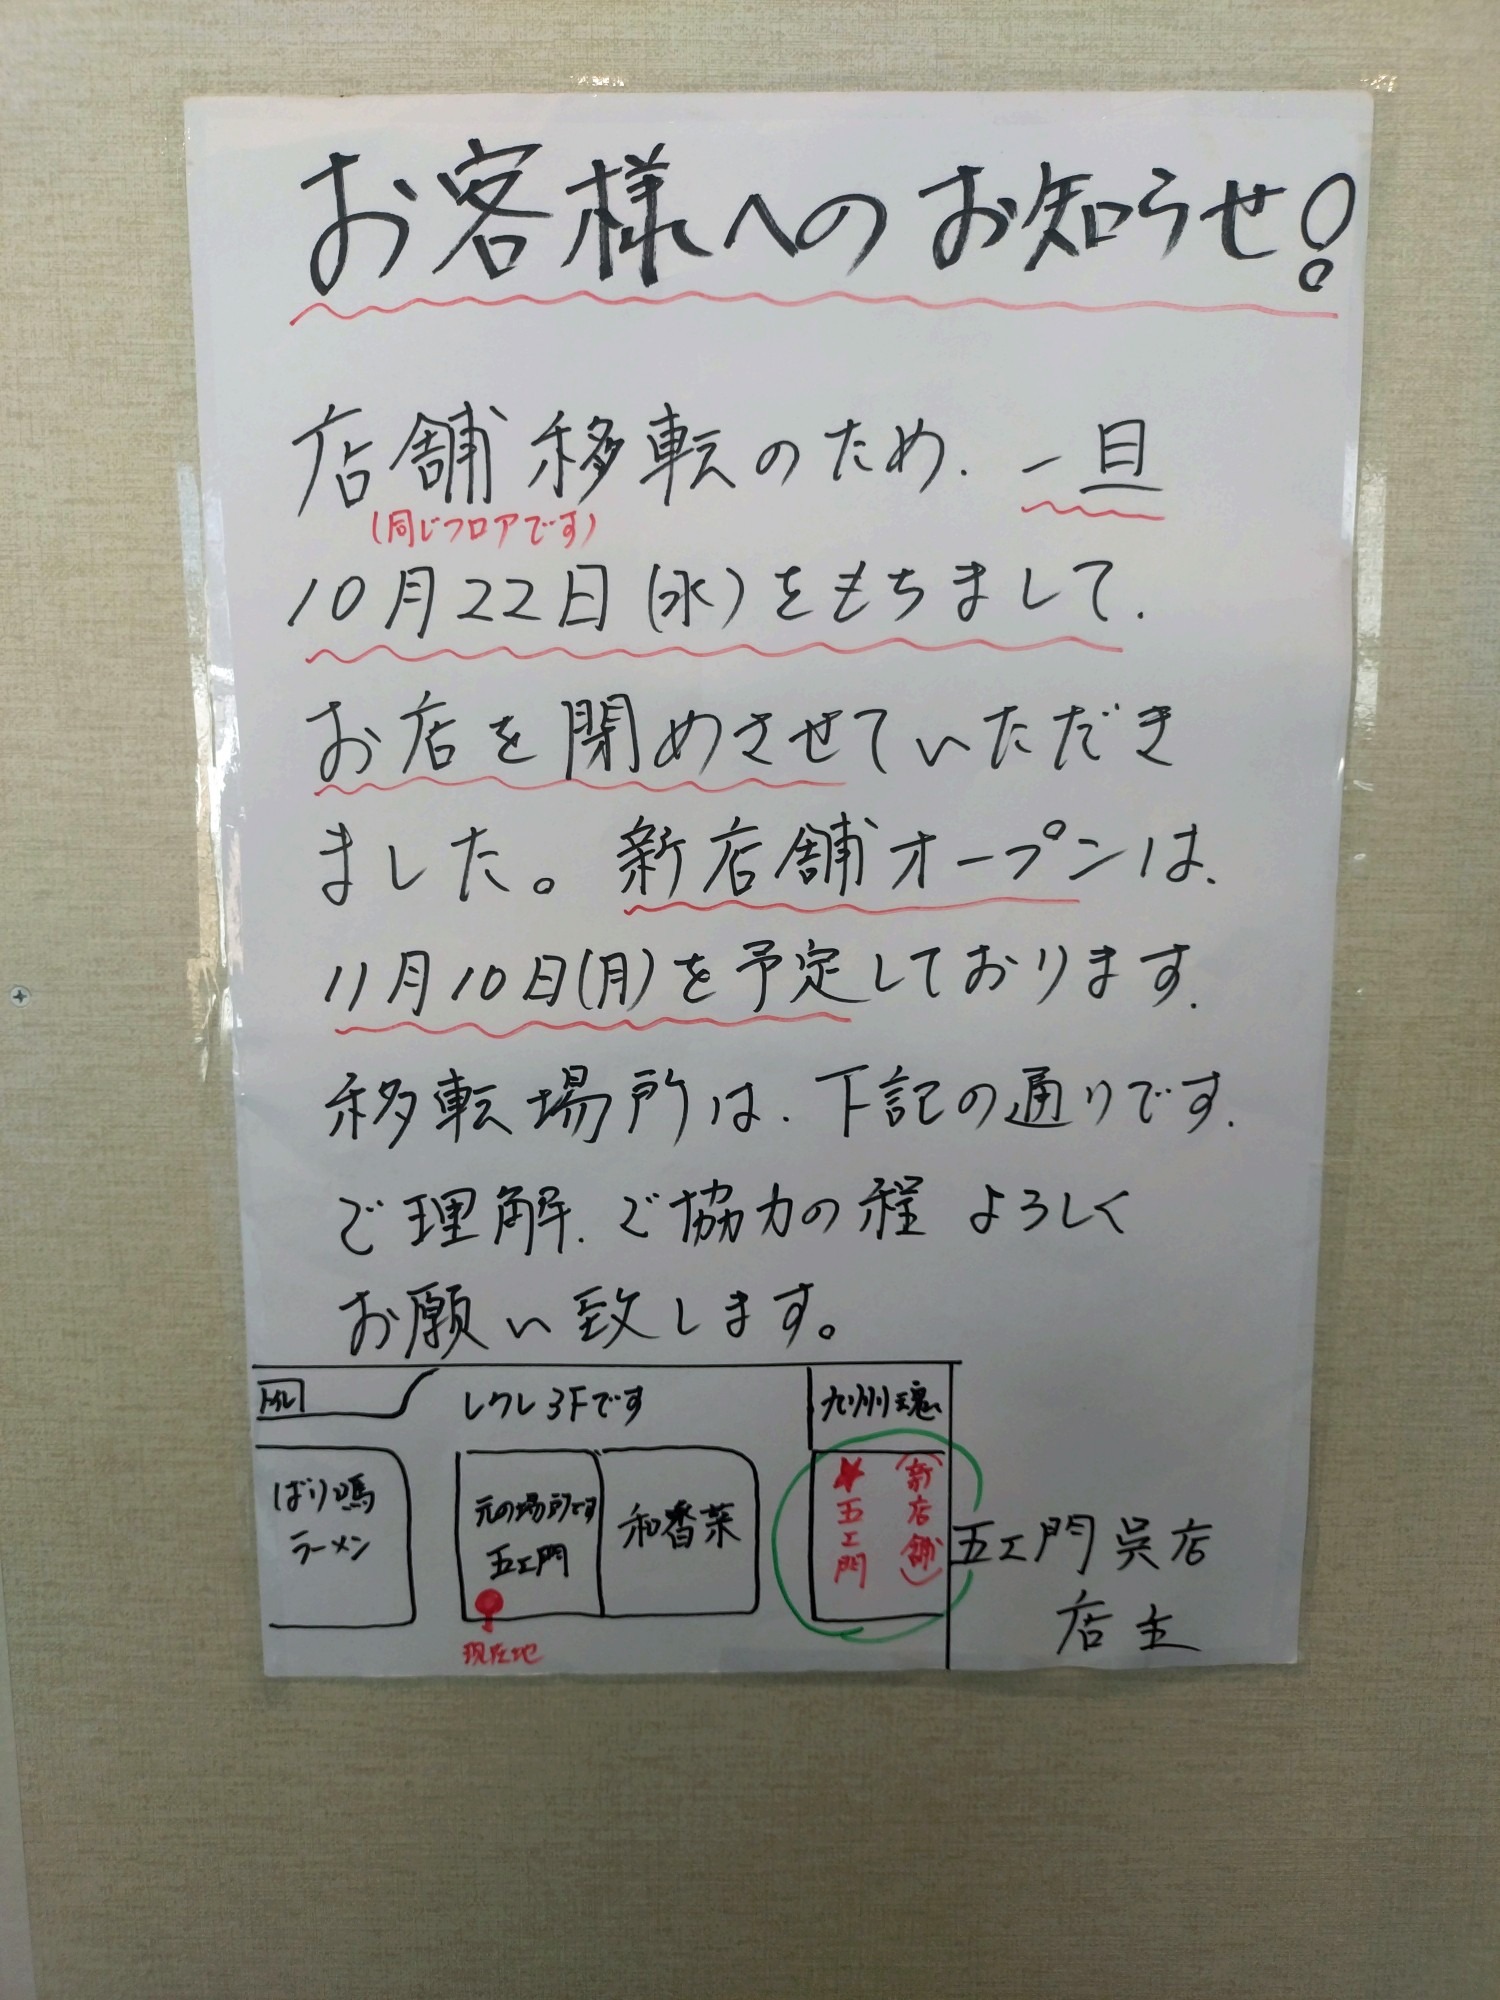 お客様へのお知らせ!
店舗移転のため、一旦
(同じフロアです)
10月22日(水)をもちまして、
お店を閉めさせていただき
ました。新店舗オープンは、
11月10日(月)を予定しております。
移転場所は、下記の通りです。
ご理解、ご協力の程 よろしく
お願い致します。
トイレ
レクレ3Fです
九州魂
ばり鳴
ラーメン
元の場所です
五エ門
現在地
和香菜
(新店舗)
★五エ門
五エ門呉店
店主